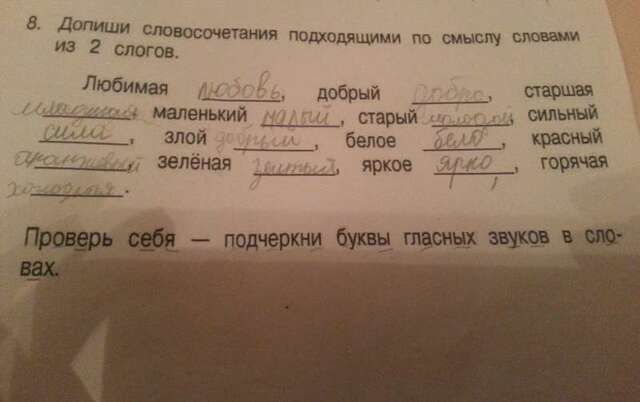 8. Допиши словосочетания подходящими по смыслу словами
из 2 слогов.
Любимая любовь, добрый добро, старшая
младшая маленький малый, старый молодой сильный
сила, злой добрый, белое бело, красный
оранживый зелёная желтый, яркое ярко, горячая
холодная.
Проверь себя — подчеркни буквы гласных звуков в сло-
вах.